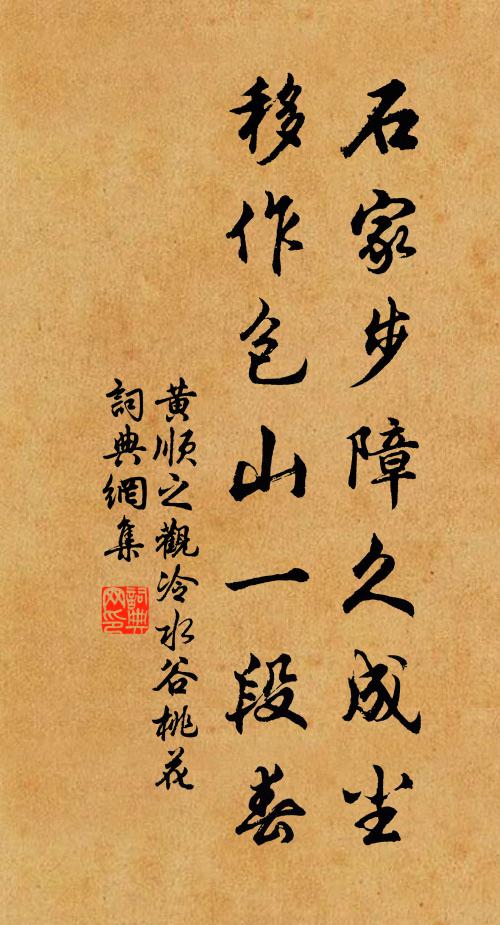 石家步障久成尘
移作包山一段春
黄顺之觀冷水谷桃花
詞典網集
詞典
网印